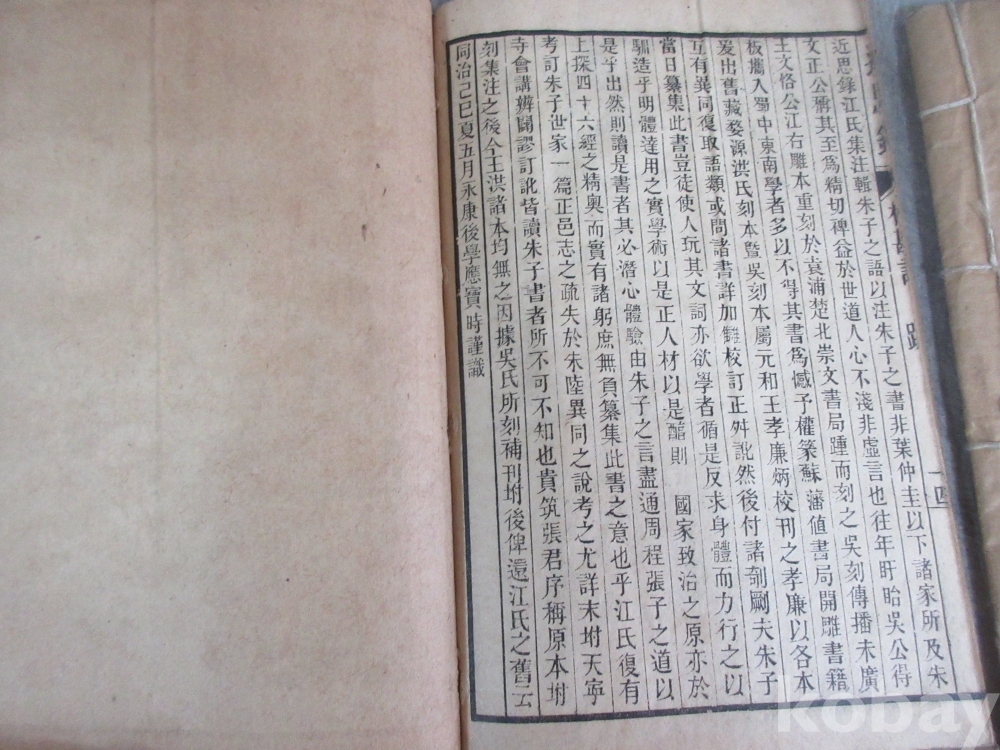 近思錄江氏集注輯朱子之語以注朱子之書非葉仲圭以下諸家所及朱
文正公稱其至爲精切裨益於世道人心不淺非虛言也往年盱眙吳公得
王文恪公江右雕本重刻於袁浦楚北崇文書局踵而刻之吳刻傳播未廣
板攜入蜀中東南學者多以不得其書爲憾予權篆蘇藩値書局開雕書籍
爰出舊藏婺源洪氏刻本曁吳刻本屬元和王孝廉炳校刊之孝廉以各本
互有異同復取語類或問諸書詳加讎校訂正舛訛然後付諸剞劂夫朱子
當日纂集此書豈徒使人玩其文詞亦欲學者循是反求身體而力行之以
馴造乎明體達用之實學術以是正人材以是醕則　國家致治之原亦於
是乎出然則讀是書者其必潛心體驗由朱子之言盡通周程張子之道以
上探四十六經之精奧而實有諸躬庶無負纂集此書之意也乎江氏復有
考訂朱子世家一篇正邑志之疏失於朱陸異同之說考之尤詳末坿天寧
寺會講辨闢謬訂訛皆讀朱子書者所不可不知也貴筑張君序稱原本坿
刻集注之後今王洪諸本均無之因據吳氏所刻補刊坿後俾還江氏之舊云
同治己巳夏五月永康後學應寶時謹識
跋
十四
kobay